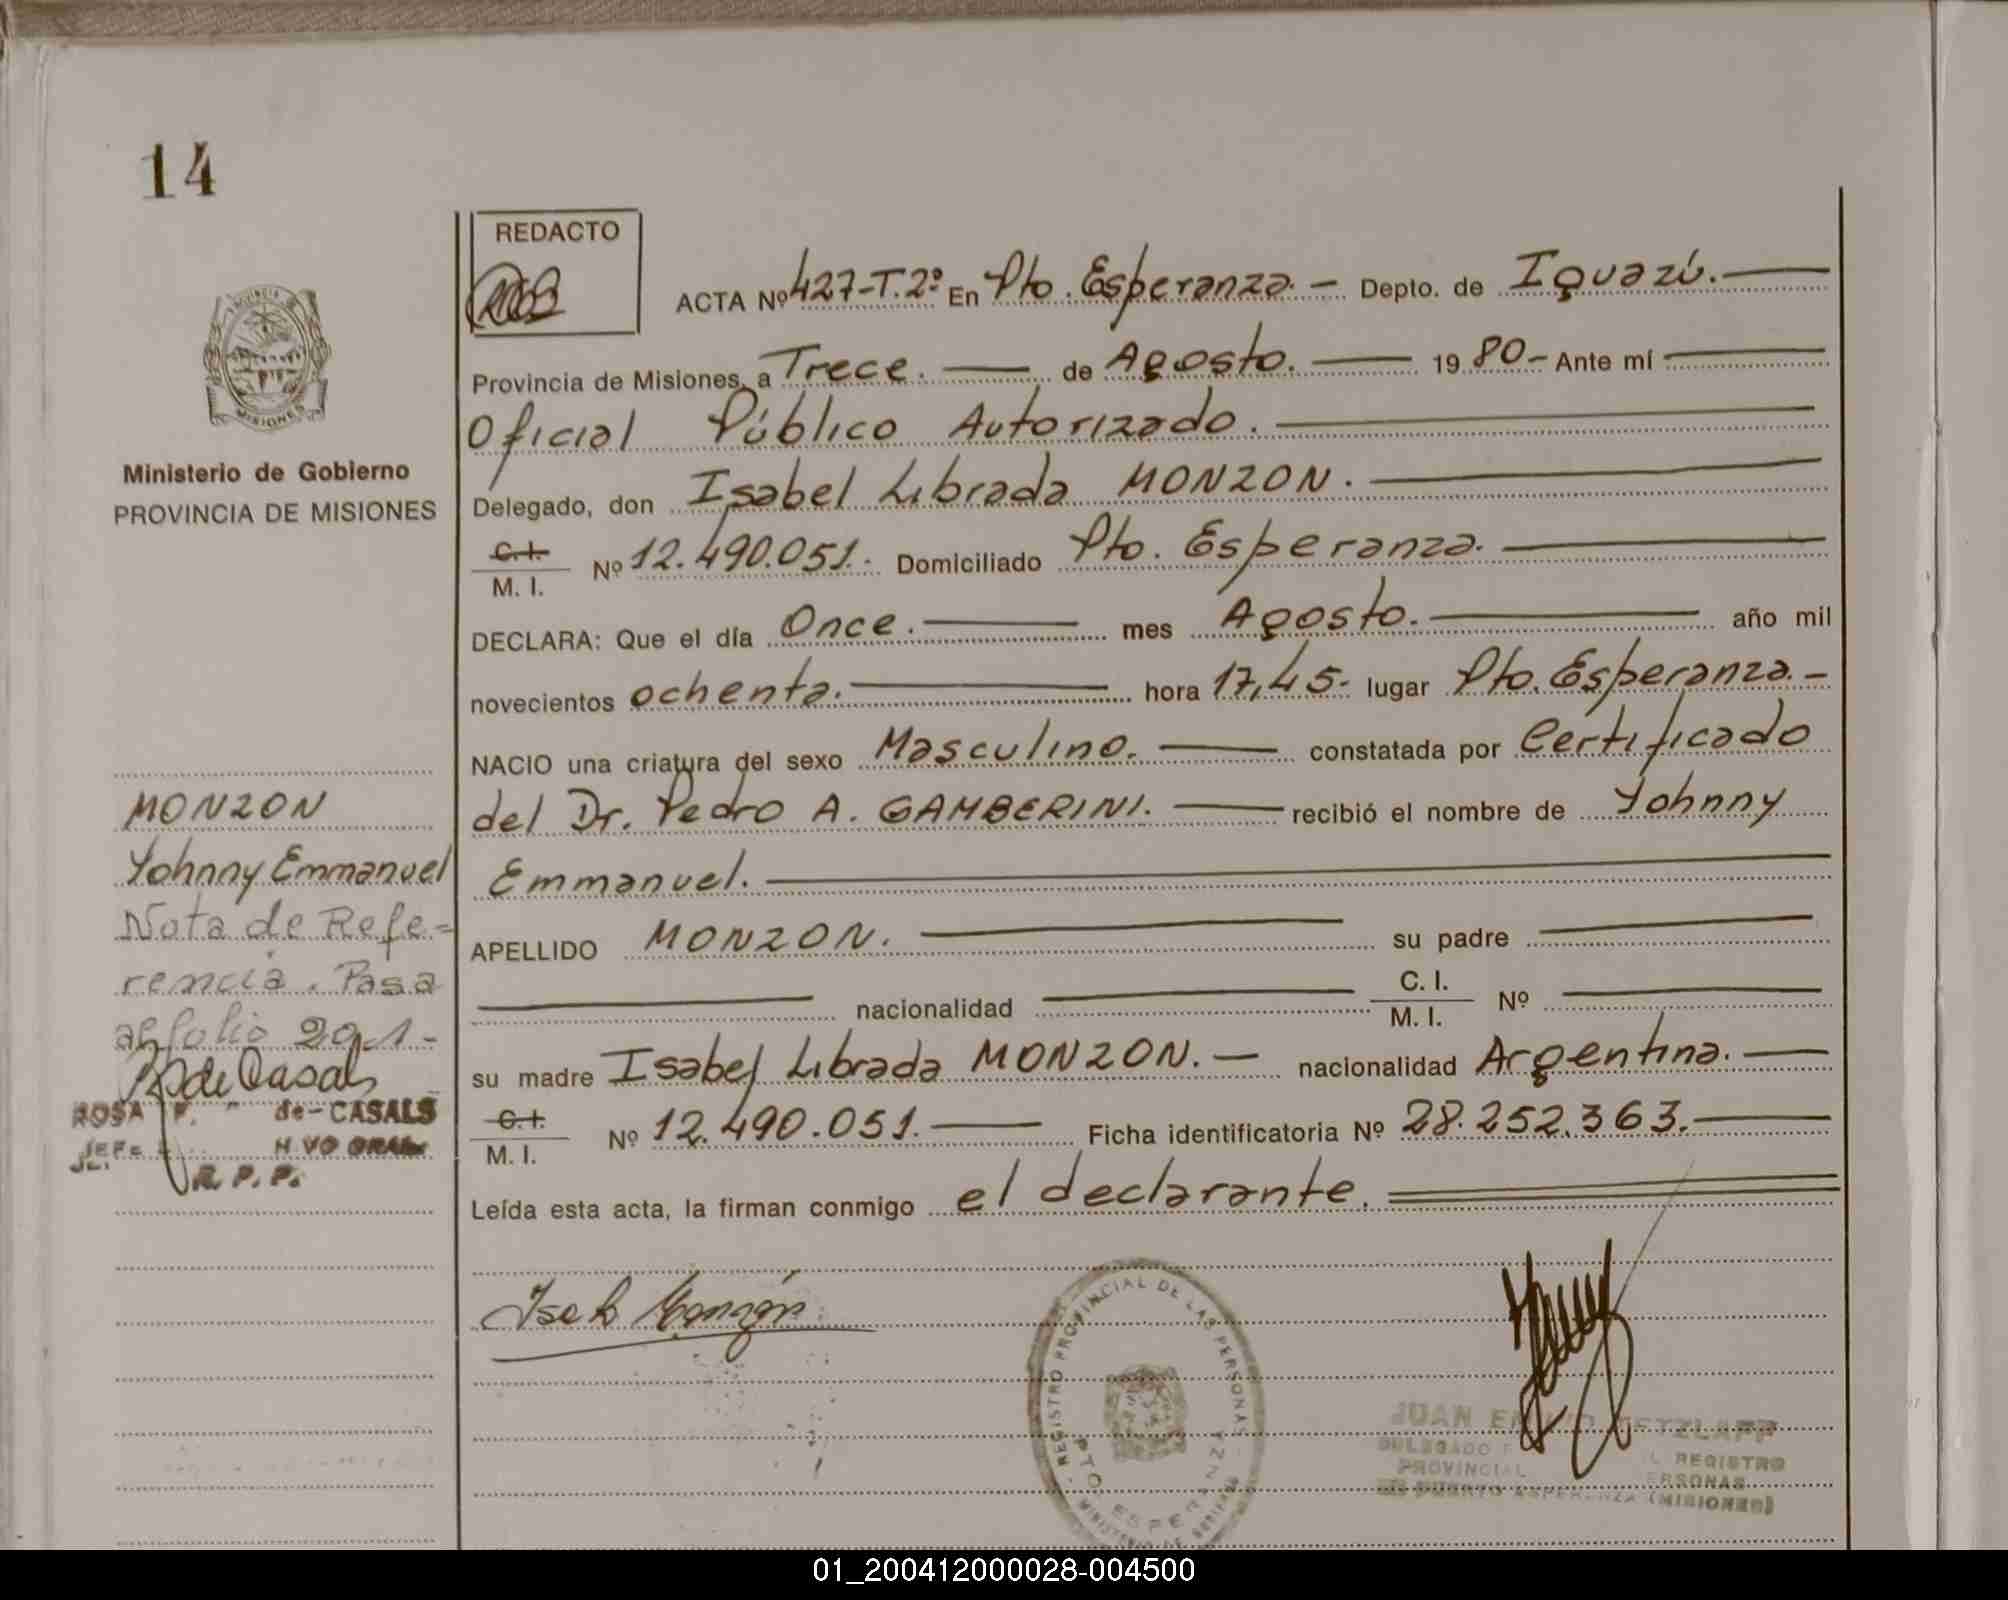 14
REDACTO
ACTA Nº 427-T.2º En Pto. Esperanza.- Depto. de Iguazú.
Provincia de Misiones, a Trece. de Agosto. 19 80- Ante mí
Oficial Público Autorizado.
Delegado, don Isabel Librada MONZON.
C. I.
M. I. Nº 12.490.051.- Domiciliado Pto. Esperanza.
DECLARA: Que el día Once. mes Agosto. año mil
novecientos ochenta. hora 17,45- lugar Pto. Esperanza.-
NACIO una criatura del sexo Masculino. constatada por Certificado
del Dr. Pedro A. GAMBERINI. recibió el nombre de Yohnny
Emmanuel.
APELLIDO MONZON. su padre
nacionalidad C. I.
M. I. Nº
su madre Isabel Librada MONZON.- nacionalidad Argentina.
C. I.
M. I. Nº 12.490.051. Ficha identificatoria Nº 28.252.363.
Leída esta acta, la firman conmigo el declarante.
PROVINCIA
MISIONES
Ministerio de Gobierno
PROVINCIA DE MISIONES
MONZON
Yohnny Emmanuel
Nota de Refe-
rencia. Pasa
al folio 201-
de Casals
ROSA F. de-CASALS
JEFE
R. P. P.
Isab Monzón
REGISTRO PROVINCIAL DE LAS PERSONAS
PTO. ESPERANZA
JUAN
DELEGADO
REGISTRO
PROVINCIAL
PERSONAS
PUERTO ESPERANZA (MISIONES)
01_200412000028-004500